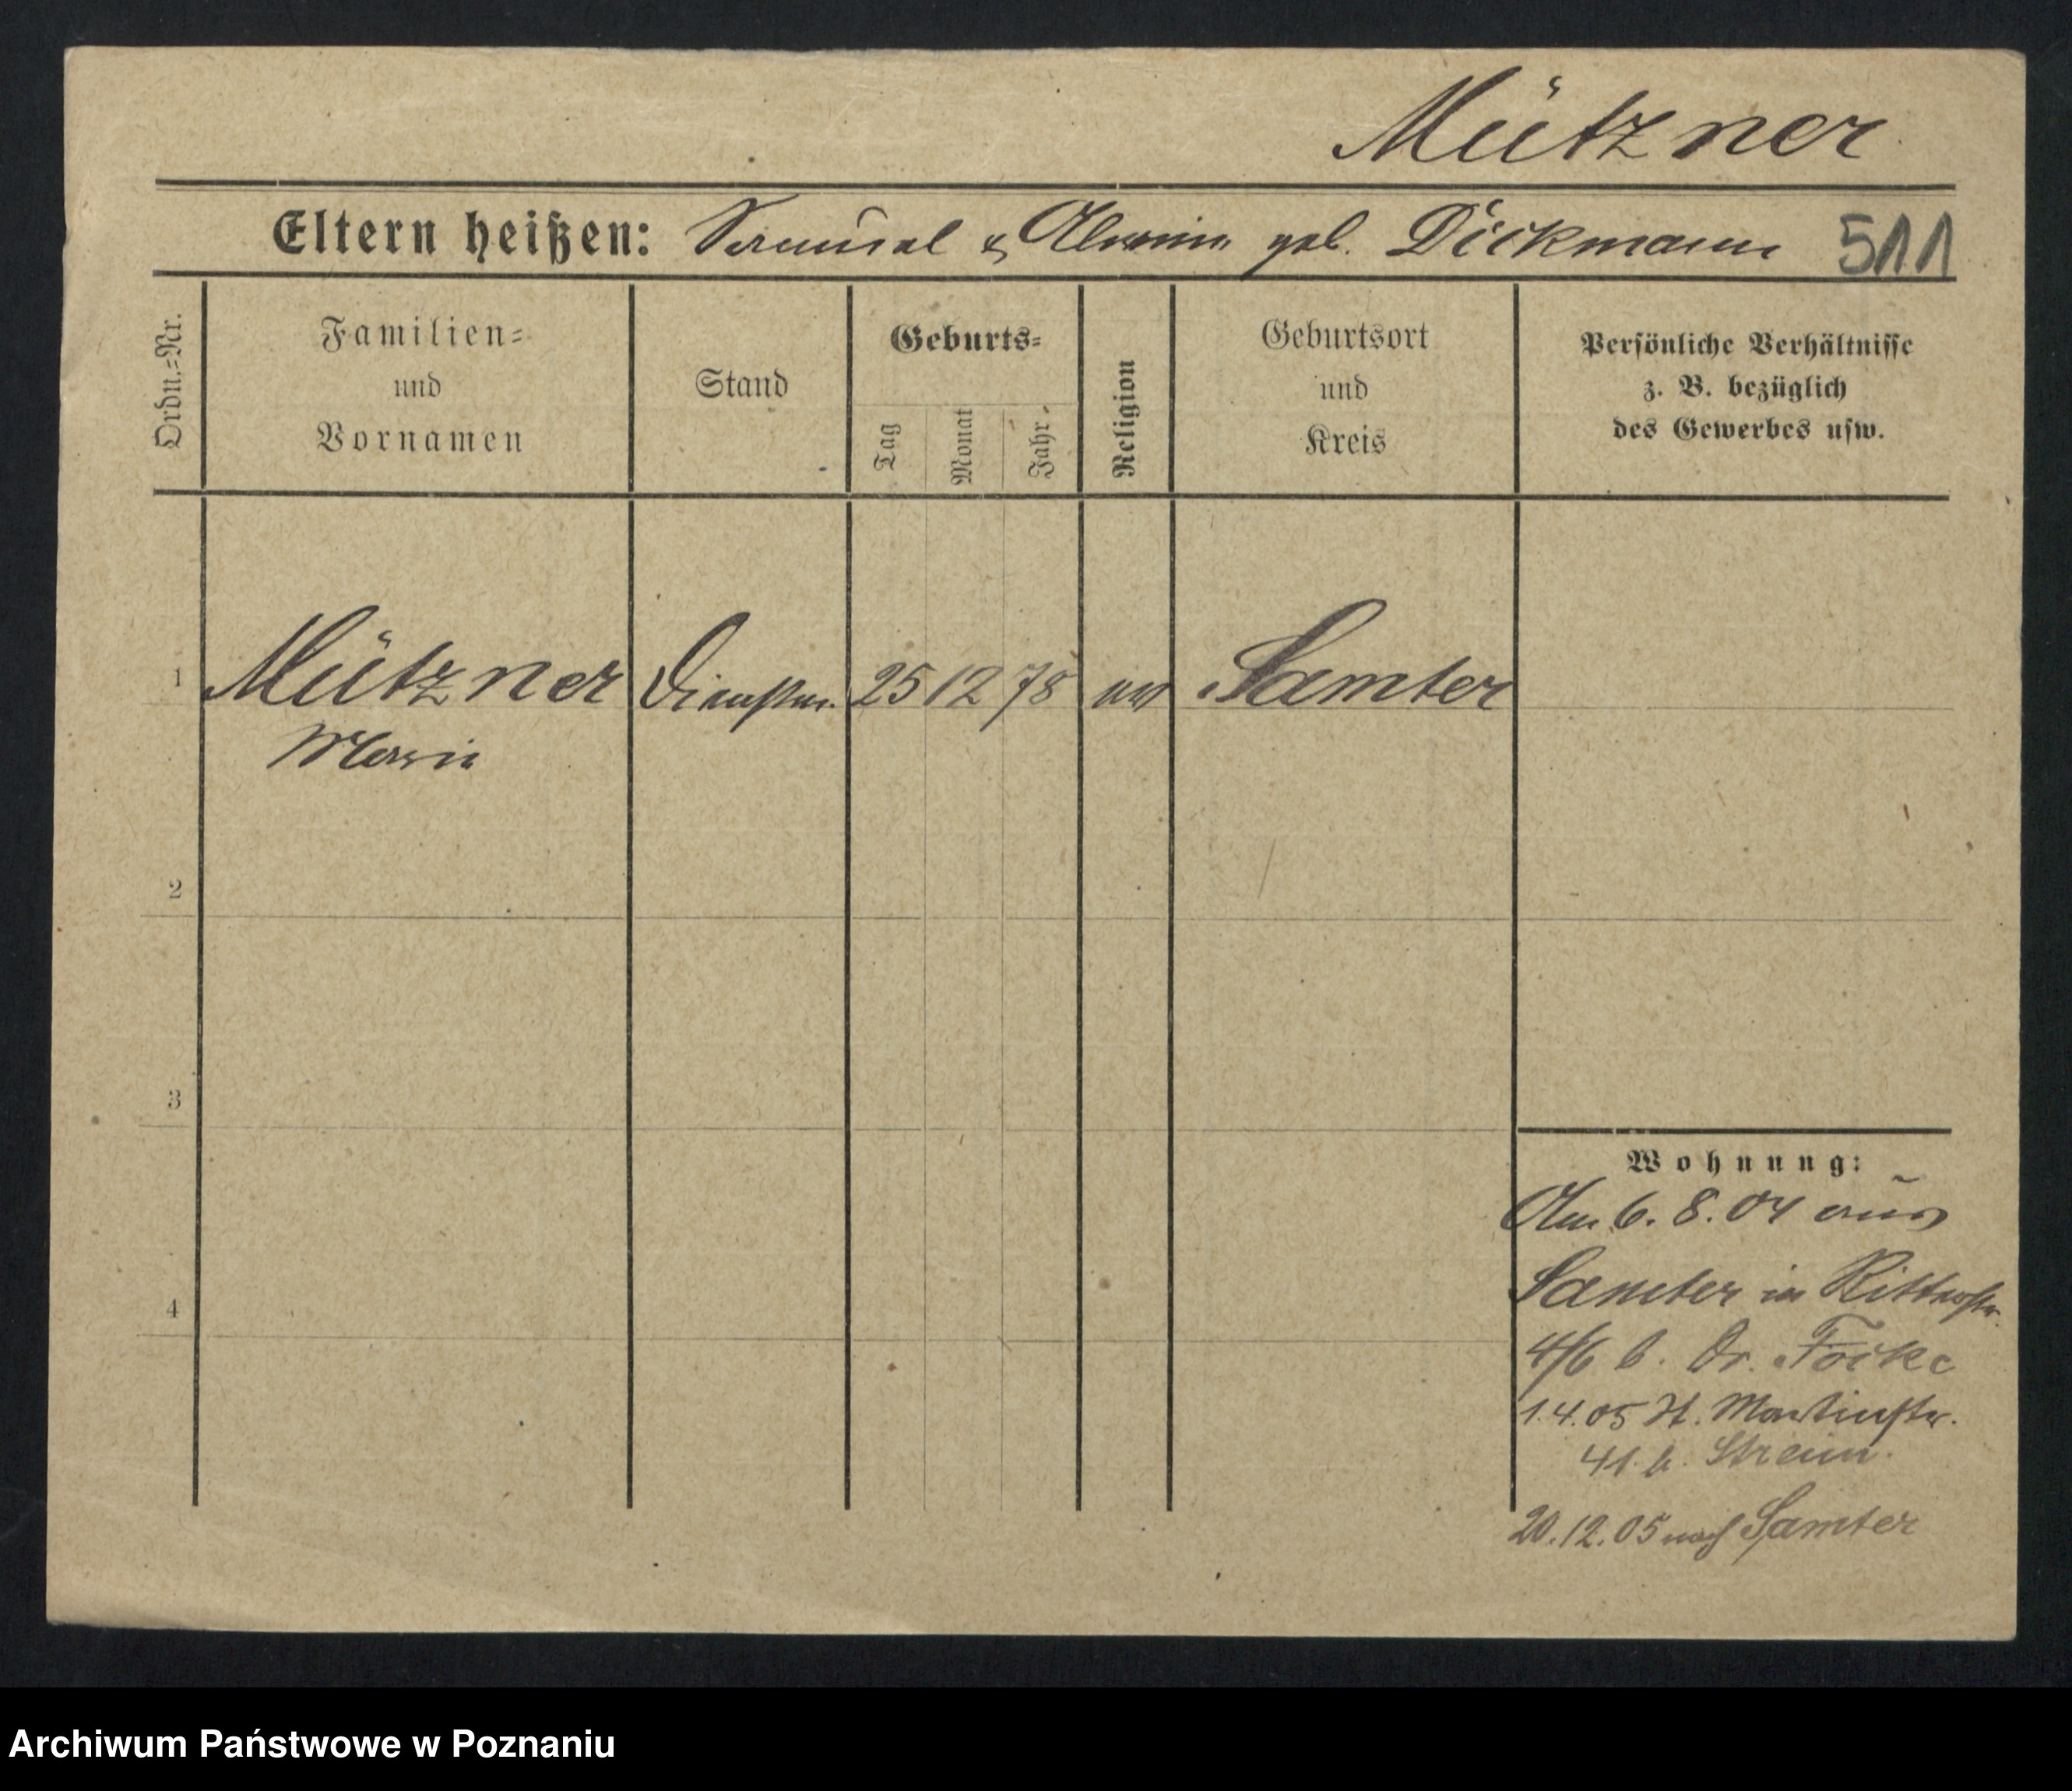 Mützner
Eltern heißen: Samuel & Alwine geb. Dickmann 511
Ordn.=Nr.
Familien=
und
Vornamen
Stand
Geburts=
Tag
Monat
Jahr
Religion
Geburtsort
und
Kreis
Persönliche Verhältnisse
z. B. bezüglich
des Gewerbes usw.
1 Mützner Dienstm. 25 12 78 Samter
Marie
2
3
4
Wohnung:
Am 6. 8. 04 aus
Samter in Ritterstr.
4/6 b. Dr.
1.4.05 St. Martinstr.
41. b.
20.12.05 nach Samter
Archiwum Państwowe w Poznaniu